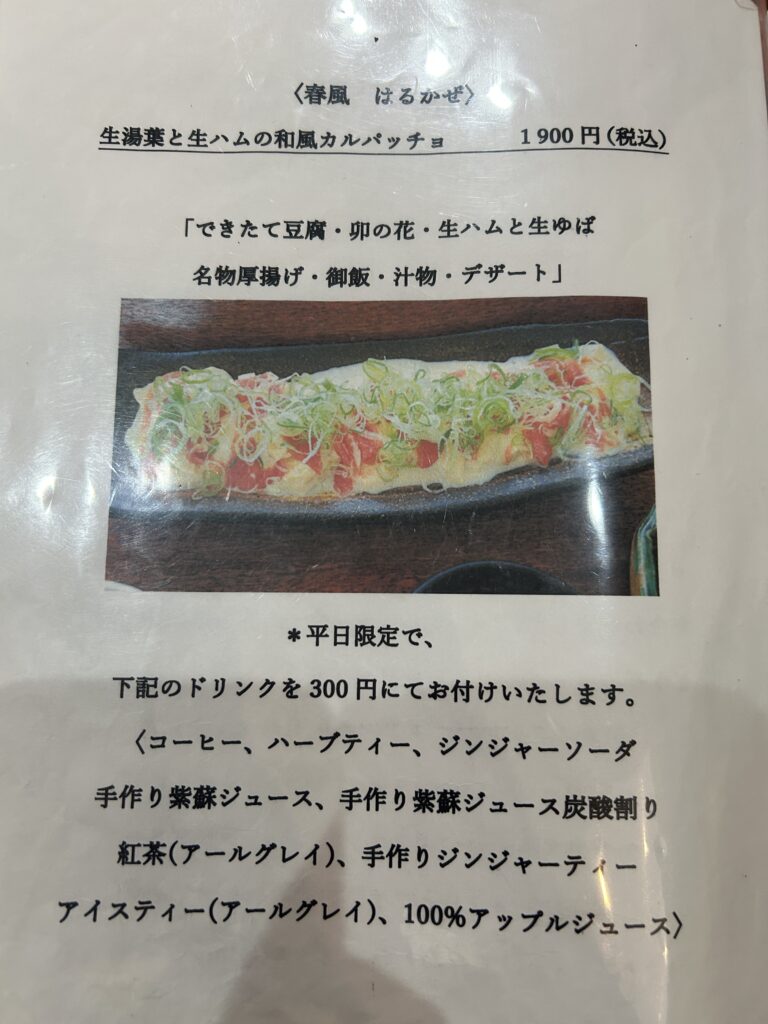 〈春風　はるかぜ〉
生湯葉と生ハムの和風カルパッチョ　1900円(税込)
「できたて豆腐・卯の花・生ハムと生ゆば
名物厚揚げ・御飯・汁物・デザート」
＊平日限定で、
下記のドリンクを300円にてお付けいたします。
〈コーヒー、ハーブティー、ジンジャーソーダ
手作り紫蘇ジュース、手作り紫蘇ジュース炭酸割り
紅茶(アールグレイ)、手作りジンジャーティー
アイスティー(アールグレイ)、100%アップルジュース〉